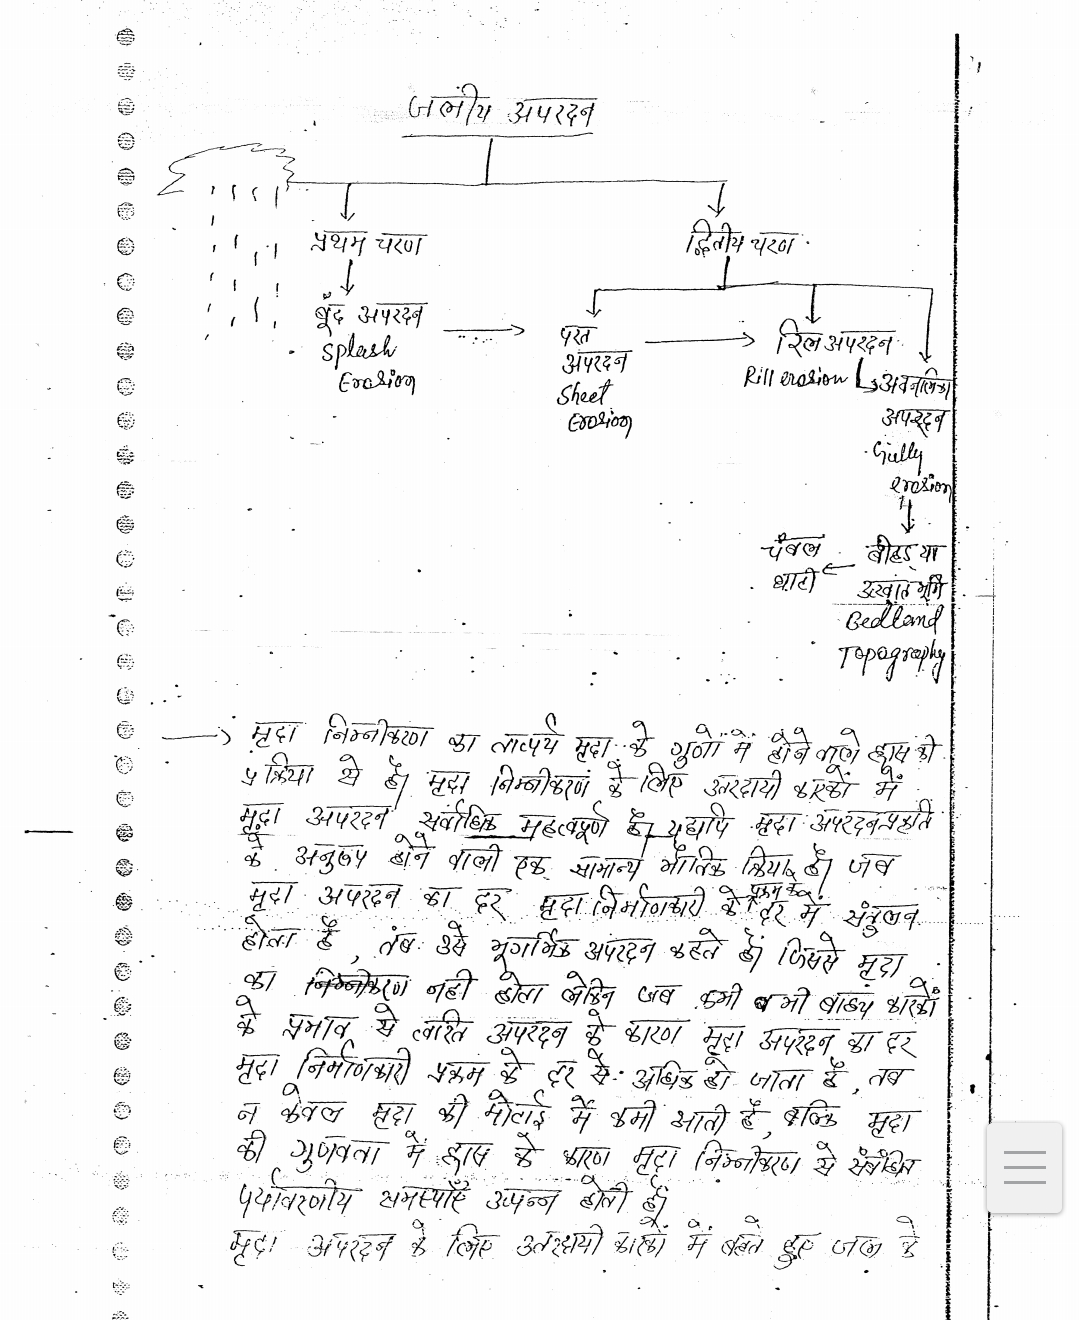 जलीय अपरदन
प्रथम चरण
द्वितीय चरण
बूँद अपरदन
Splash
Erosion
परत
अपरदन
Sheet
Erosion
रिल अपरदन
Rill erosion
अवनलिका
अपरदन
Gully
erosion
बीहड़ या
उत्खात भूमि
Bedland
Topography
चंबल
घाटी
मृदा निम्नीकरण का तात्पर्य मृदा के गुणों में होने वाले ह्रास की
प्रक्रिया से है। मृदा निम्नीकरण के लिए उतरदायी कारकों में
मृदा अपरदन सर्वाधिक महत्वपूर्ण है। यद्यपि मृदा अपरदन प्रकृति
के अनुरूप होने वाली एक सामान्य भौतिक क्रिया है। जब
मृदा अपरदन का दर मृदा निर्माणकारी प्रक्रम के दर में संतुलन
होता है, तब उसे भूगर्भिक अपरदन कहते है। जिससे मृदा
का निम्नीकरण नही होता लेकिन जब कभी भी बाह्य कारकों
के प्रभाव से त्वरित अपरदन के कारण मृदा अपरदन का दर
मृदा निर्माणकारी प्रक्रम के दर से अधिक हो जाता है, तब
न केवल मृदा की मोटाई में कमी आती है, बल्कि मृदा
की गुणवता में ह्रास के कारण मृदा निम्नीकरण से संबंधित
पर्यावरणीय समस्याएँ उत्पन्न होती है।
मृदा अपरदन के लिए उतरदायी कारकों में बहते हुए जल के